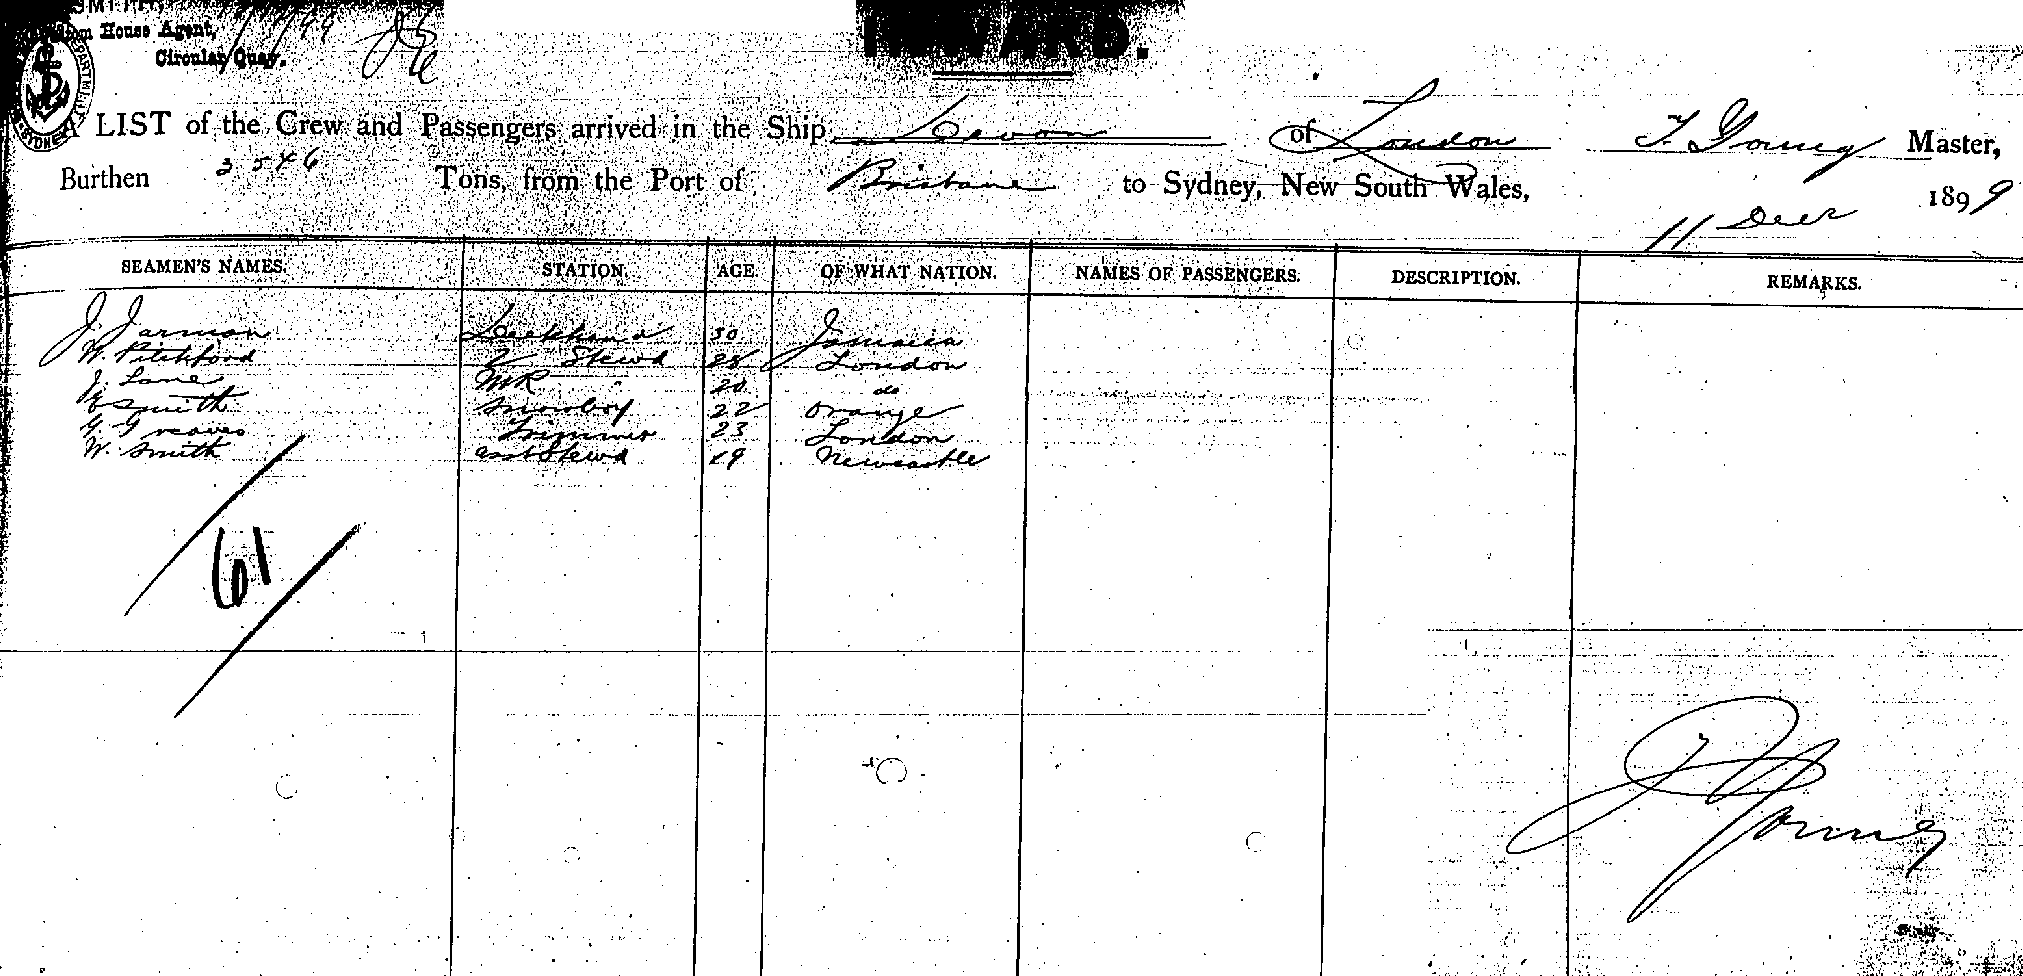 House Agent,
Circular Quay.
INWARD.
A LIST of the Crew and Passengers arrived in the Ship Devon of London T. Young Master,
Burthen 3546 Tons, from the Port of Brisbane to Sydney, New South Wales, 11 Decr 1899
SEAMEN'S NAMES. STATION. AGE. OF WHAT NATION. NAMES OF PASSENGERS. DESCRIPTION. REMARKS.
J. Jarman Deckhand 30 Jamaica
W. Pitchford Stewd 28 London
J. Lane MR 20 do
E Smith Messboy 22 Orange
G. Greaves Trimmer 23 London
W. Smith asst Stewd 19 Newcastle
61
T Young